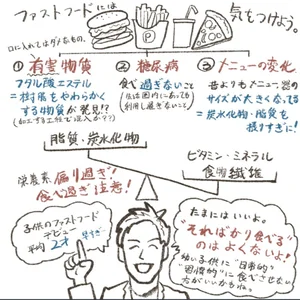 ファストフードには
気をつけよう。
口に入れてはダメなもの。
P
① 有害物質
フタル酸エステル
＝樹脂をやわらかく
する物質が発見!?
② 糖尿病
食べ過ぎないこと
③ メニューの変化
昔よりもメニュー、器の
サイズが大きくなってる
＝炭水化物・脂質を
摂りすぎに！
脂質・炭水化物
ビタミン・ミネラル
食物繊維
栄養素 偏り過ぎ！
食べ過ぎ注意！
子供のファストフード
デビュー
平均 2才 早すぎ…
たまにはいいよ。
そればかり食べる
のはよくないよ！
幼い子供に“日常的”
“習慣的”に食べさせない
方がいいかもね。